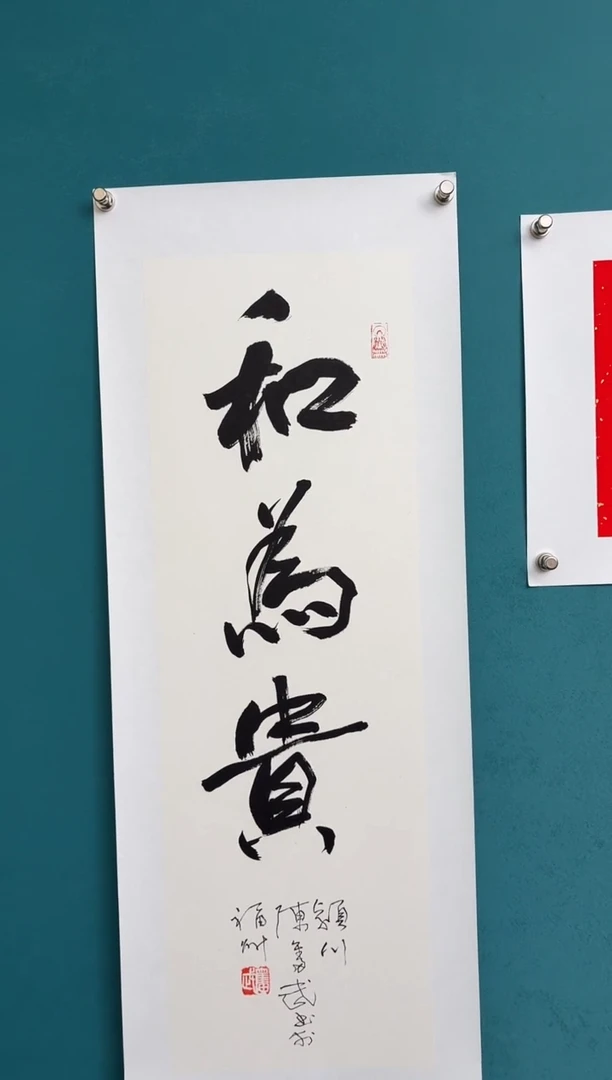 和為貴
穎川
陳
武書於
福州